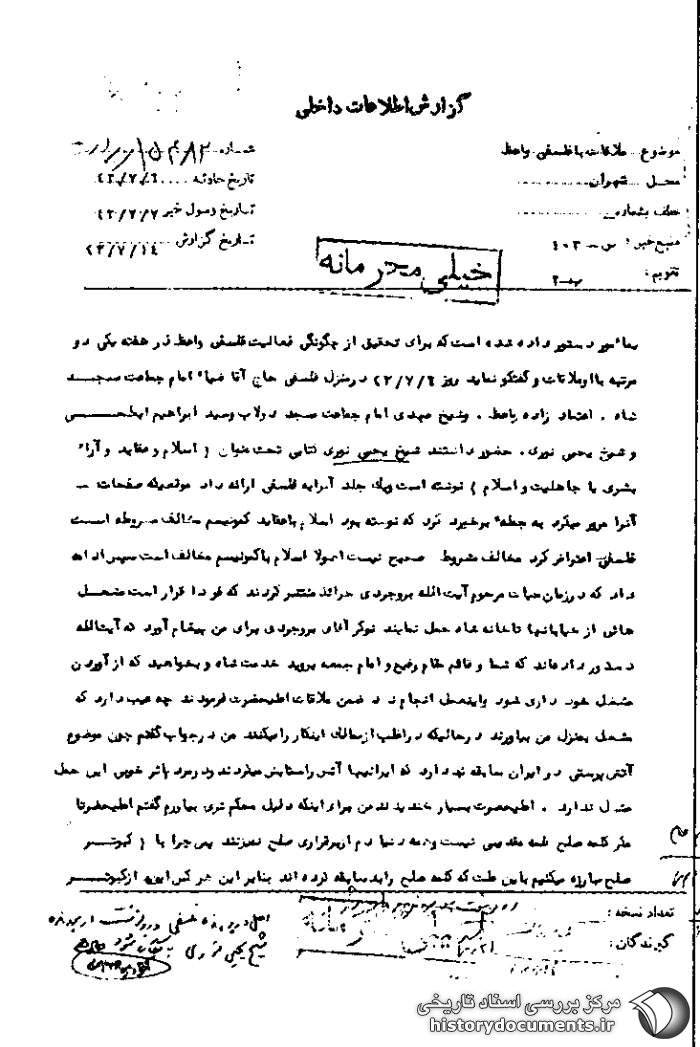 گزارش اطلاعات داخلی
موضوع ملاقات با فلسفی واعظ
محل شهران
عطف بشماره
منبع خبر : س ـ ۴۰۳
تقویم : ب ـ ۲
شماره ۱۵۴۸۲
تاریخ حادثه ۴۲/۷/۶
تاریخ وصول خبر ۴۲/۷/۷
تاریخ گزارش ۴۲/۷/۱۴
خیلی محرمانه
بمأمور دستور داده شده است که برای تحقیق از چگونگی فعالیت فلسفی واعظ در هفته یکی دو
مرتبه با او ملاقات و گفتگو نماید روز ۴۲/۷/۶ در منزل فلسفی حاج آقا ضیاء امام جماعت مسجد
شاه . اعتماد زاده واعظ . و شیخ مهدی امام جماعت مسجد دولاب و سید ابراهیم ابطحی
و شیخ یحیی نوری . حضور داشتند شیخ یحیی نوری کتابی تحت عنوان ( اسلام و عقاید و آراء
بشری یا جاهلیت و اسلام ) نوشته است ویک جلد آنرا به فلسفی ارائه داد موقعیکه صفحات
آنرا مرور میکرد به جمله برخورد کرد که نوشته بود اسلام با عقاید کمونیسم مخالف مشروطه است
فلسفی اعتراض کرد مخالف مشروط صحیح نیست اصولا اسلام با کمونیسم مخالف است سپس ادامه
داد که در زمان حیات مرحوم آیت الله بروجردی جرائد منتشر کردند که فردا قرار است مشعل
هائی از خیابانها تا خانه شاه حمل نمایند نوکر آقای بروجردی برای من پیغام آورد که آیت الله
دستور داده اند که شما و قائم مقام رفیع و امام جمعه بروید خدمت شاه و بخواهید که از آوردن
مشعل خود داری شود و اینعمل انجام نشد ضمن ملاقات اعلیحضرت فرمودند چه عیب دارد که
مشعل بمنزل من بیاورند در حالیکه در اغلب از ممالک اینکار را میکنند من در جواب گفتم چون موضوع
آتش پرستی در ایران سابقه ندارد که ایرانیها آتش را ستایش میکردند و در مورد باثر خوبی این عمل
مشعل ندارد . اعلیحضرت بسیار خندیدند من برای اینکه دلیل محکم تری بیاورم گفتم اعلیحضرتا
مگر کلمه صلح کلمه مقدسی نیست و همه دنیا دم از برقراری صلح نمیزنند پس چرا با ( کبوتر
صلح مبارزه میکنیم باین علت که کلمه صلح را بد سابقه کرده اند بنابر این هر کس این از کبوتر
تعداد نسخه :
گیرندگان :
اصل در پرونده فلسفی
شیخ یحیی نوری
مرکز بررسی اسناد تاریخی
historydocuments.ir